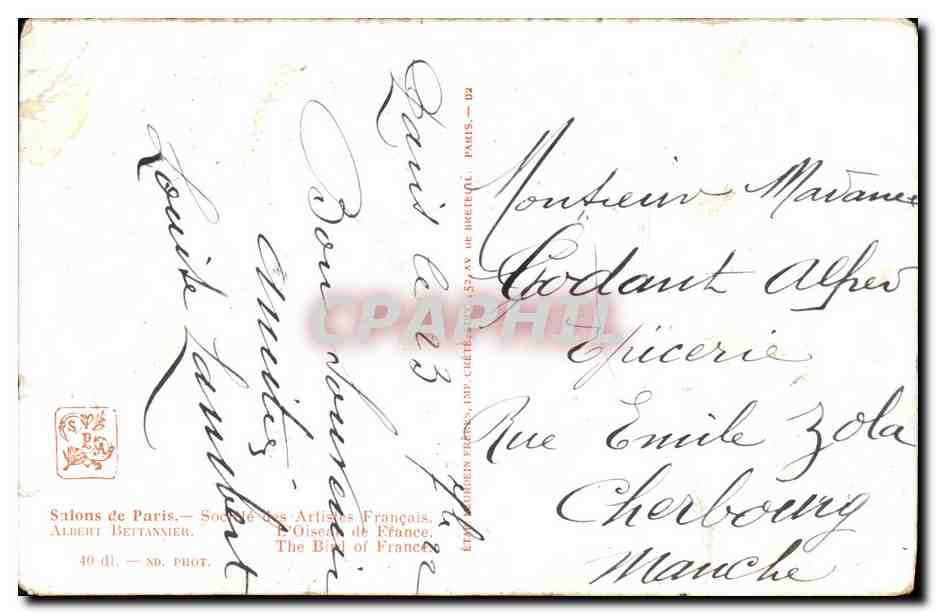 Paris le 23 7bre 22
Bon Souvenir
Amitiés
Louise Lambert
Monsieur Madame
Godant Alfred
Epicerie
Rue Emile Zola
Cherbourg
Manche
CPAPHIL
S P A
Salons de Paris. — Société des Artistes Français.
ALBERT BETTANNIER. L'Oiseau de France.
The Bird of France.
40 dl. — ND. PHOT.
NEURDEIN FRÈRES, IMP. CRÉTÉ, 52, AV. DE BRETEUIL. PARIS. — D2